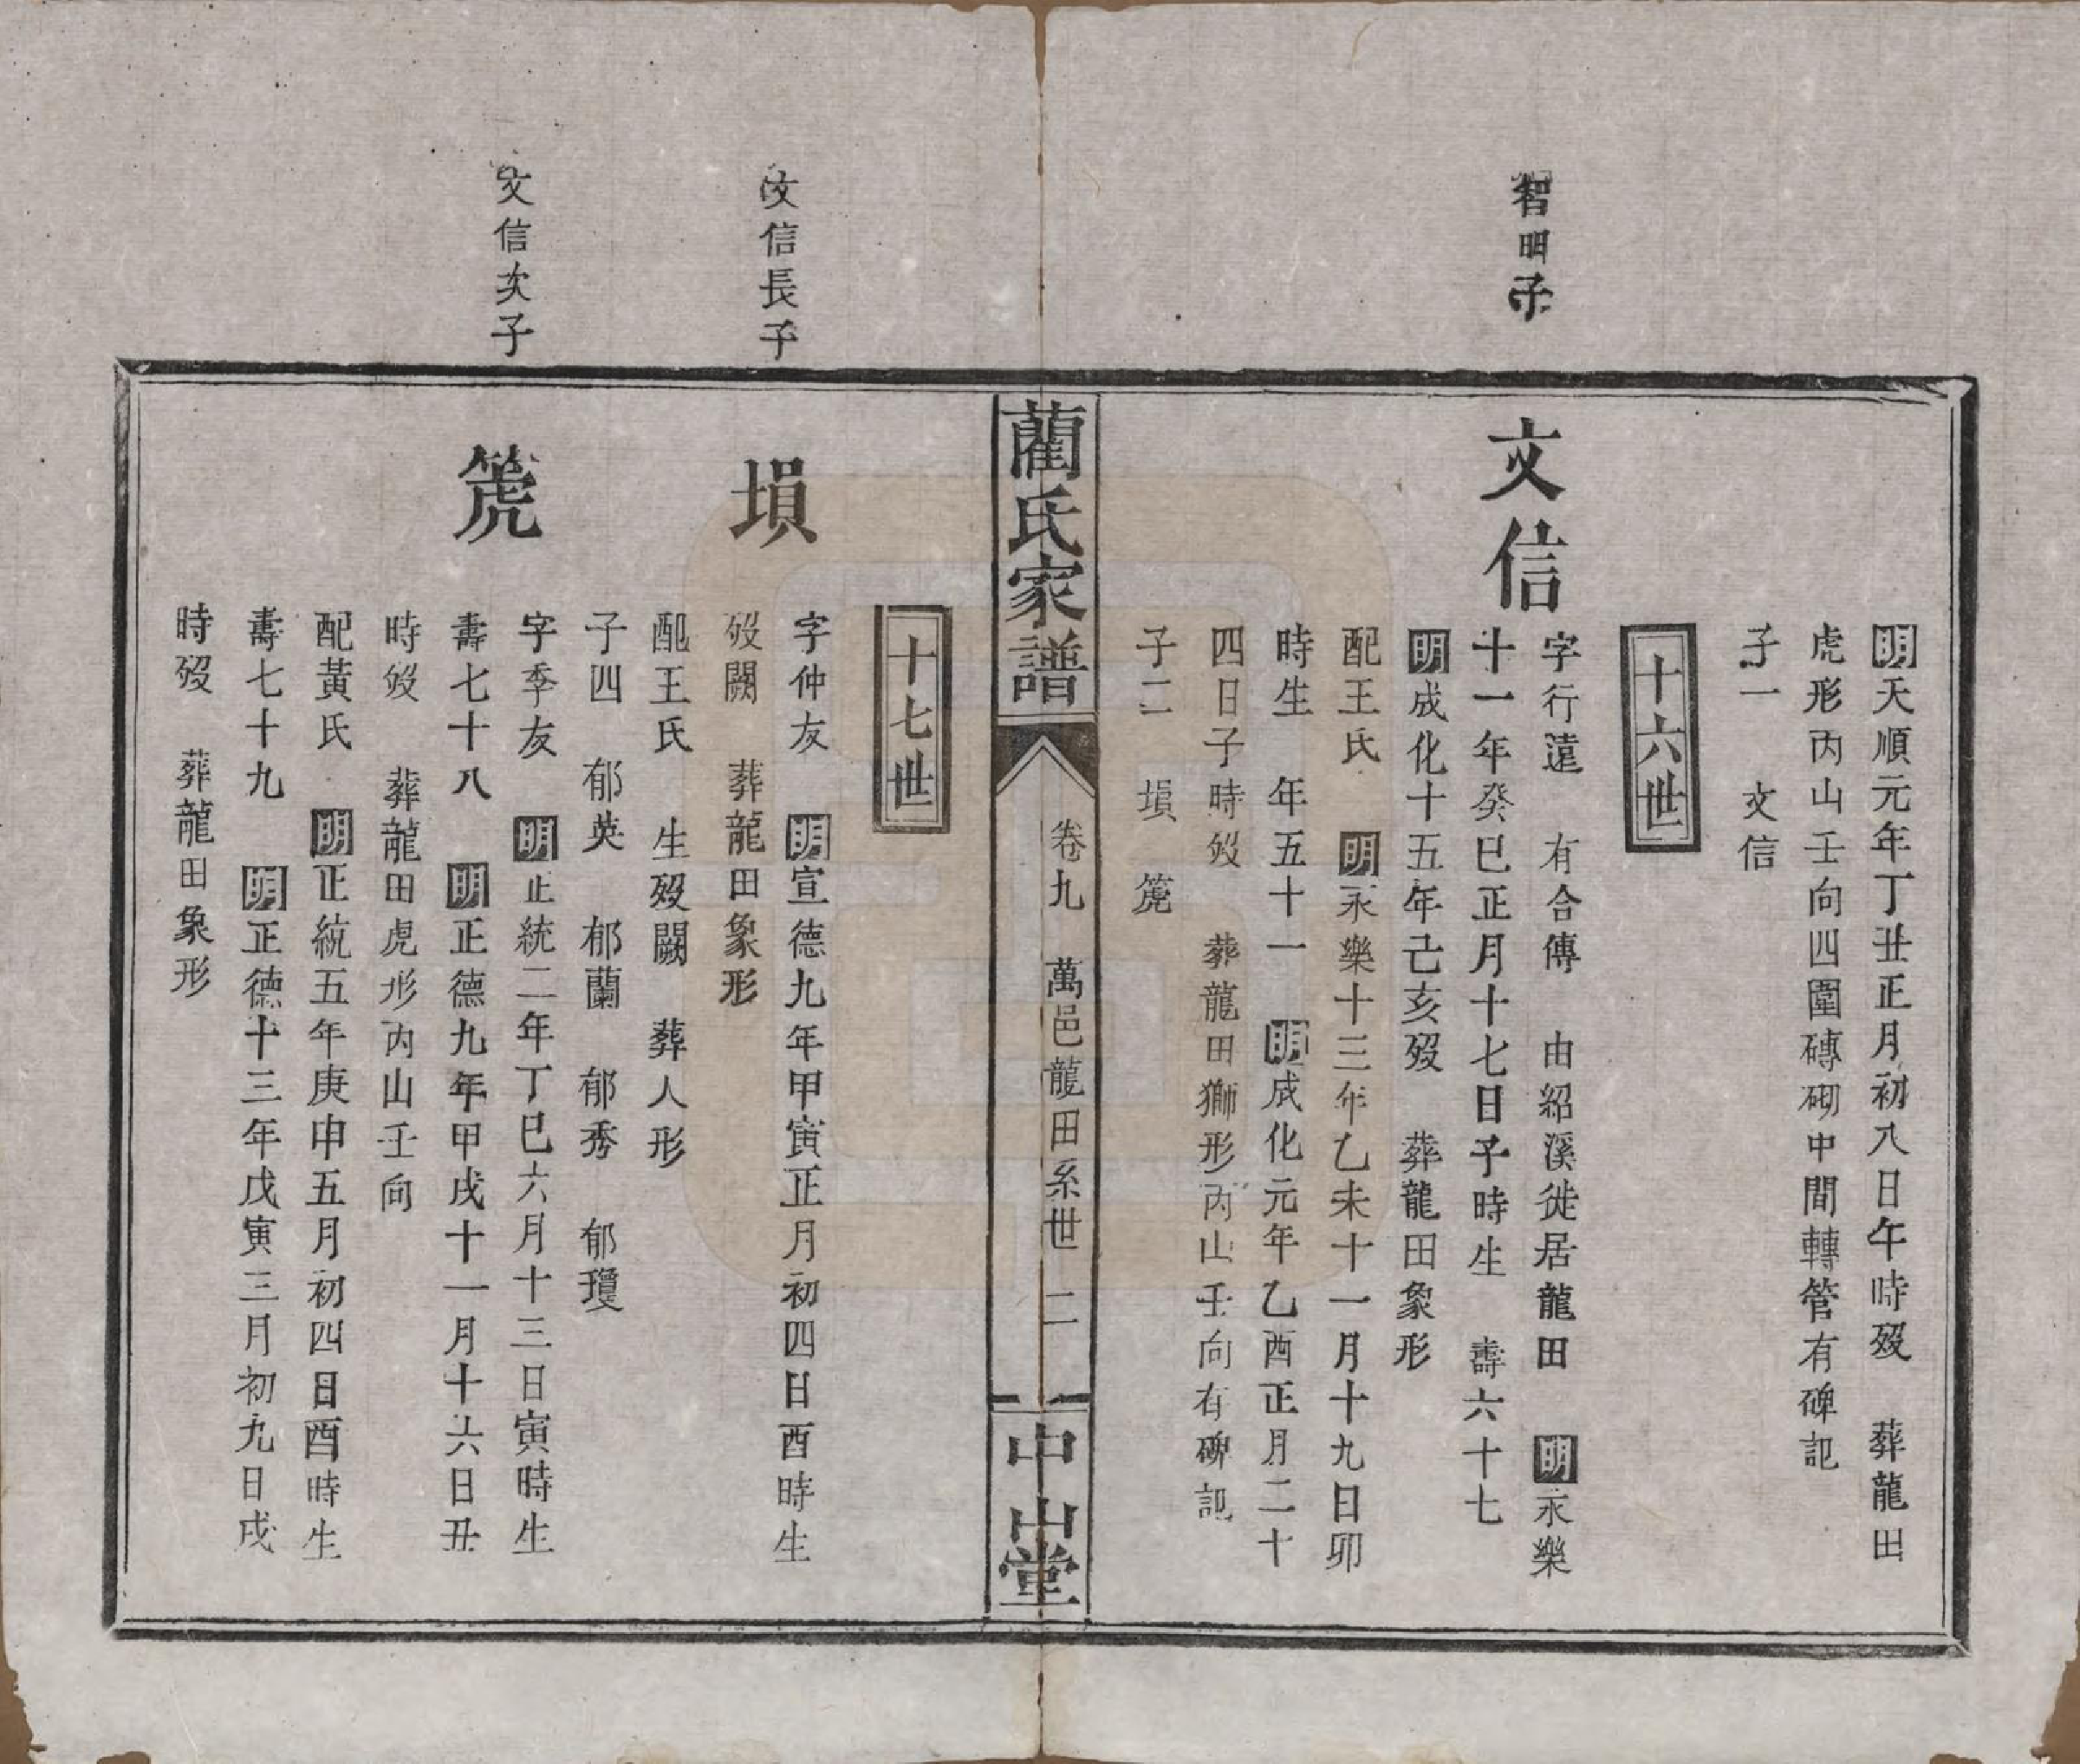 明天順元年丁丑正月初八日午時歿　葬龍田
虎形丙山壬向四圍磚砌中間轉管有碑記
子一　文信
十六世
智明子
文信
字行遠　有合傳　由紹溪徙居龍田　明永樂
十一年癸巳正月十七日子時生　壽六十七
明成化十五年己亥歿　葬龍田象形
配王氏　明永樂十三年乙未十一月十九日卯
時生　年五十一　明成化元年乙酉正月二十
四日子時歿　葬龍田獅形丙山壬向有碑記
子二　塤　箎
藺氏家譜
卷九　萬邑龍田系世　二
中山堂
十七世
文信長子
塤
字仲友　明宣德九年甲寅正月初四日酉時生
歿闕　葬龍田象形
配王氏　生歿闕　葬人形
子四　郁英　郁蘭　郁秀　郁瓊
文信次子
箎
字季友　明正統二年丁巳六月十三日寅時生
壽七十八　明正德九年甲戌十一月十六日丑
時歿　葬龍田虎形丙山壬向
配黃氏　明正統五年庚申五月初四日酉時生
壽七十九　明正德十三年戊寅三月初九日戌
時歿　葬龍田象形